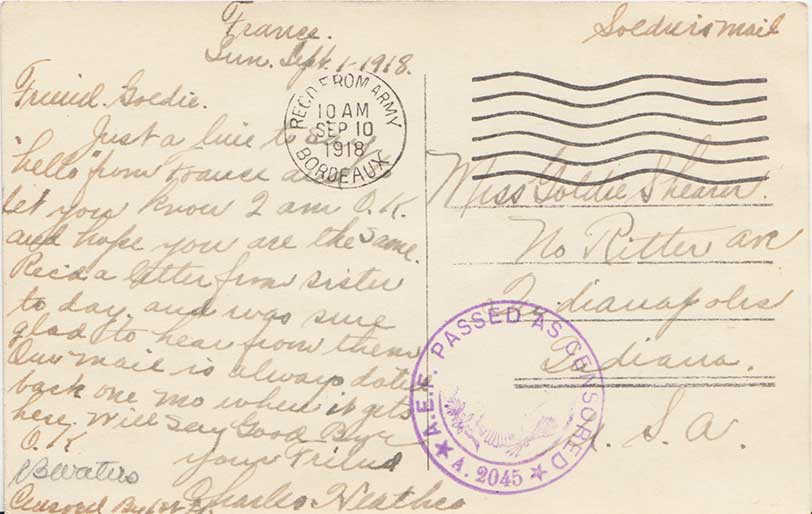 France.
Sun. Sept. 1-1918.
Friend Goldie.
Just a line to say
"hello" from France and
let you know I am O.K.
and hope you are the same.
Recd a letter from sister
to day and was sure
glad to hear from them
Our mail is always dated
back one mo when it gets
here. Will say Good Bye
O.K
your Friend
Charles
Censored By
Soldiers mail
REC'D FROM ARMY
10 AM
SEP 10
1918
BORDEAUX
Miss Goldie Shearer.
No Ritter ave
Indianapolis
Indiana.
U. S. A.
A.E.F. PASSED AS CENSORED
A. 2045